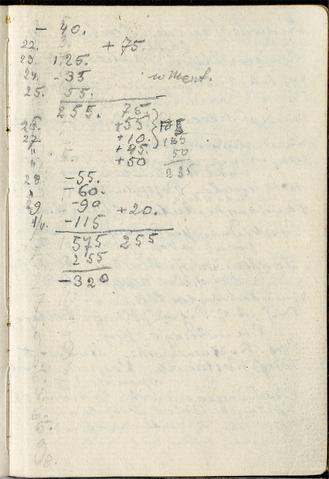 - 40.
22. + 75.
23. 125.
24. - 35
25. 55.
255. 75
26. +55
27. +10. 135
" +45. 50
" +50 235
28 -55.
" -60.
29 -90 +20.
-115
575 255
255
-320